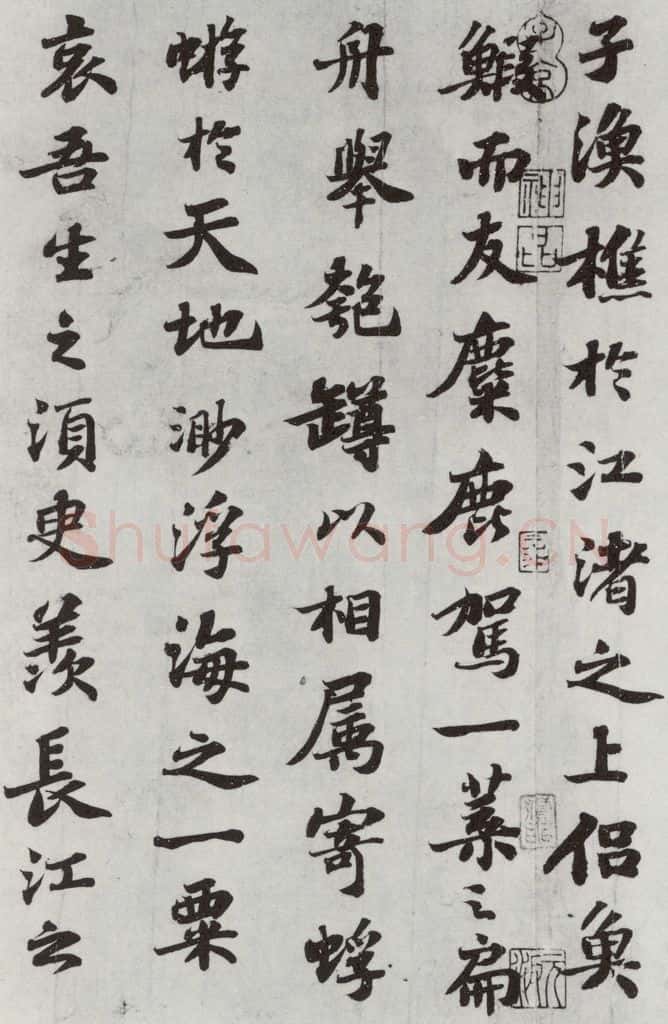 子漁樵於江渚之上侣魚
鰕而友麋鹿駕一葉之扁
舟舉匏罇以相属寄蜉
蝣於天地渺浮海之一粟
哀吾生之須臾羨長江之
Shufawang.CN